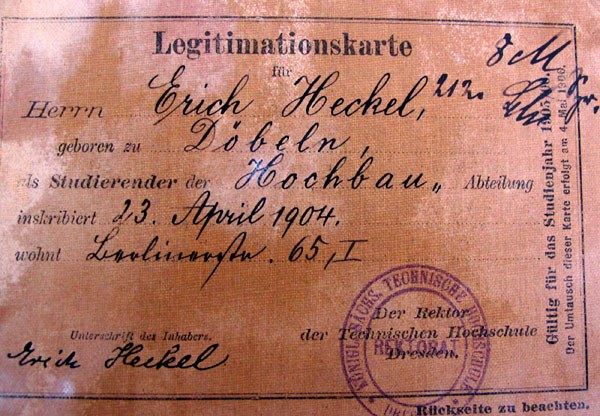 Legitimationskarte
für
Herrn Erich Heckel, 212.
geboren zu Döbeln,
als Studierender der Hochbau„ Abteilung
inskribiert 23. April 1904.
wohnt Berlinerstr. 65, I
Unterschrift des Inhabers.
Erich Heckel
Der Rektor
der Technischen Hochschule
Dresden.
KÖNIGL. SÄCHS. TECHNISCHE HOCHSCHULE
REKTORAT
Rückseite zu beachten.
8 M
Gültig für das Studienjahr 1905/06.
Der Umtausch dieser Karte erfolgt am 4. Mai 1906.